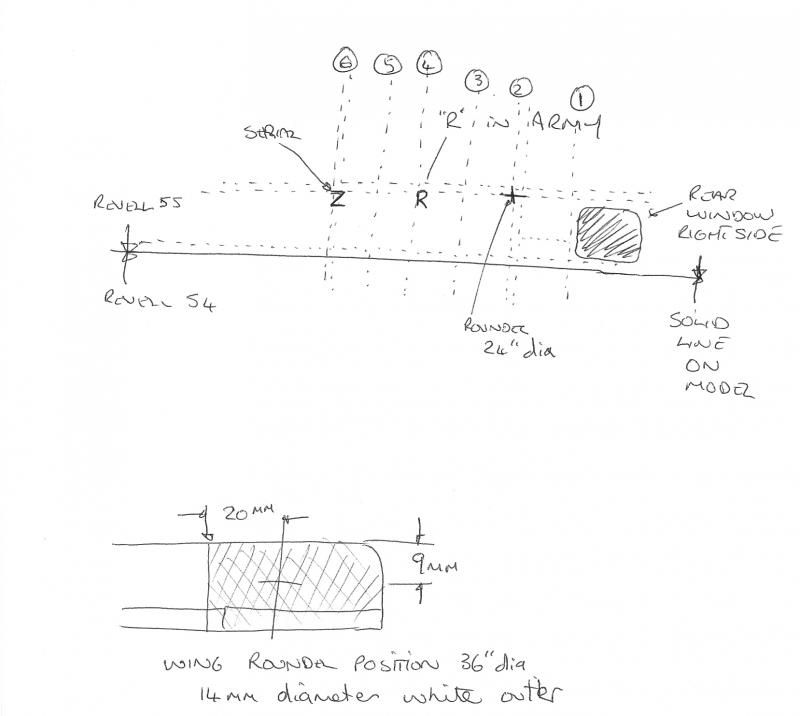 6 5 4 3 2 1
"R" IN ARMY
SERIAL
Z R
REAR
WINDOW
RIGHT SIDE
REVELL 55
REVELL 54
ROUNDEL
24" dia
SOLID
LINE
ON
MODEL
20 MM
9 MM
WING ROUNDEL POSITION 36" dia
14 MM diameter white outer